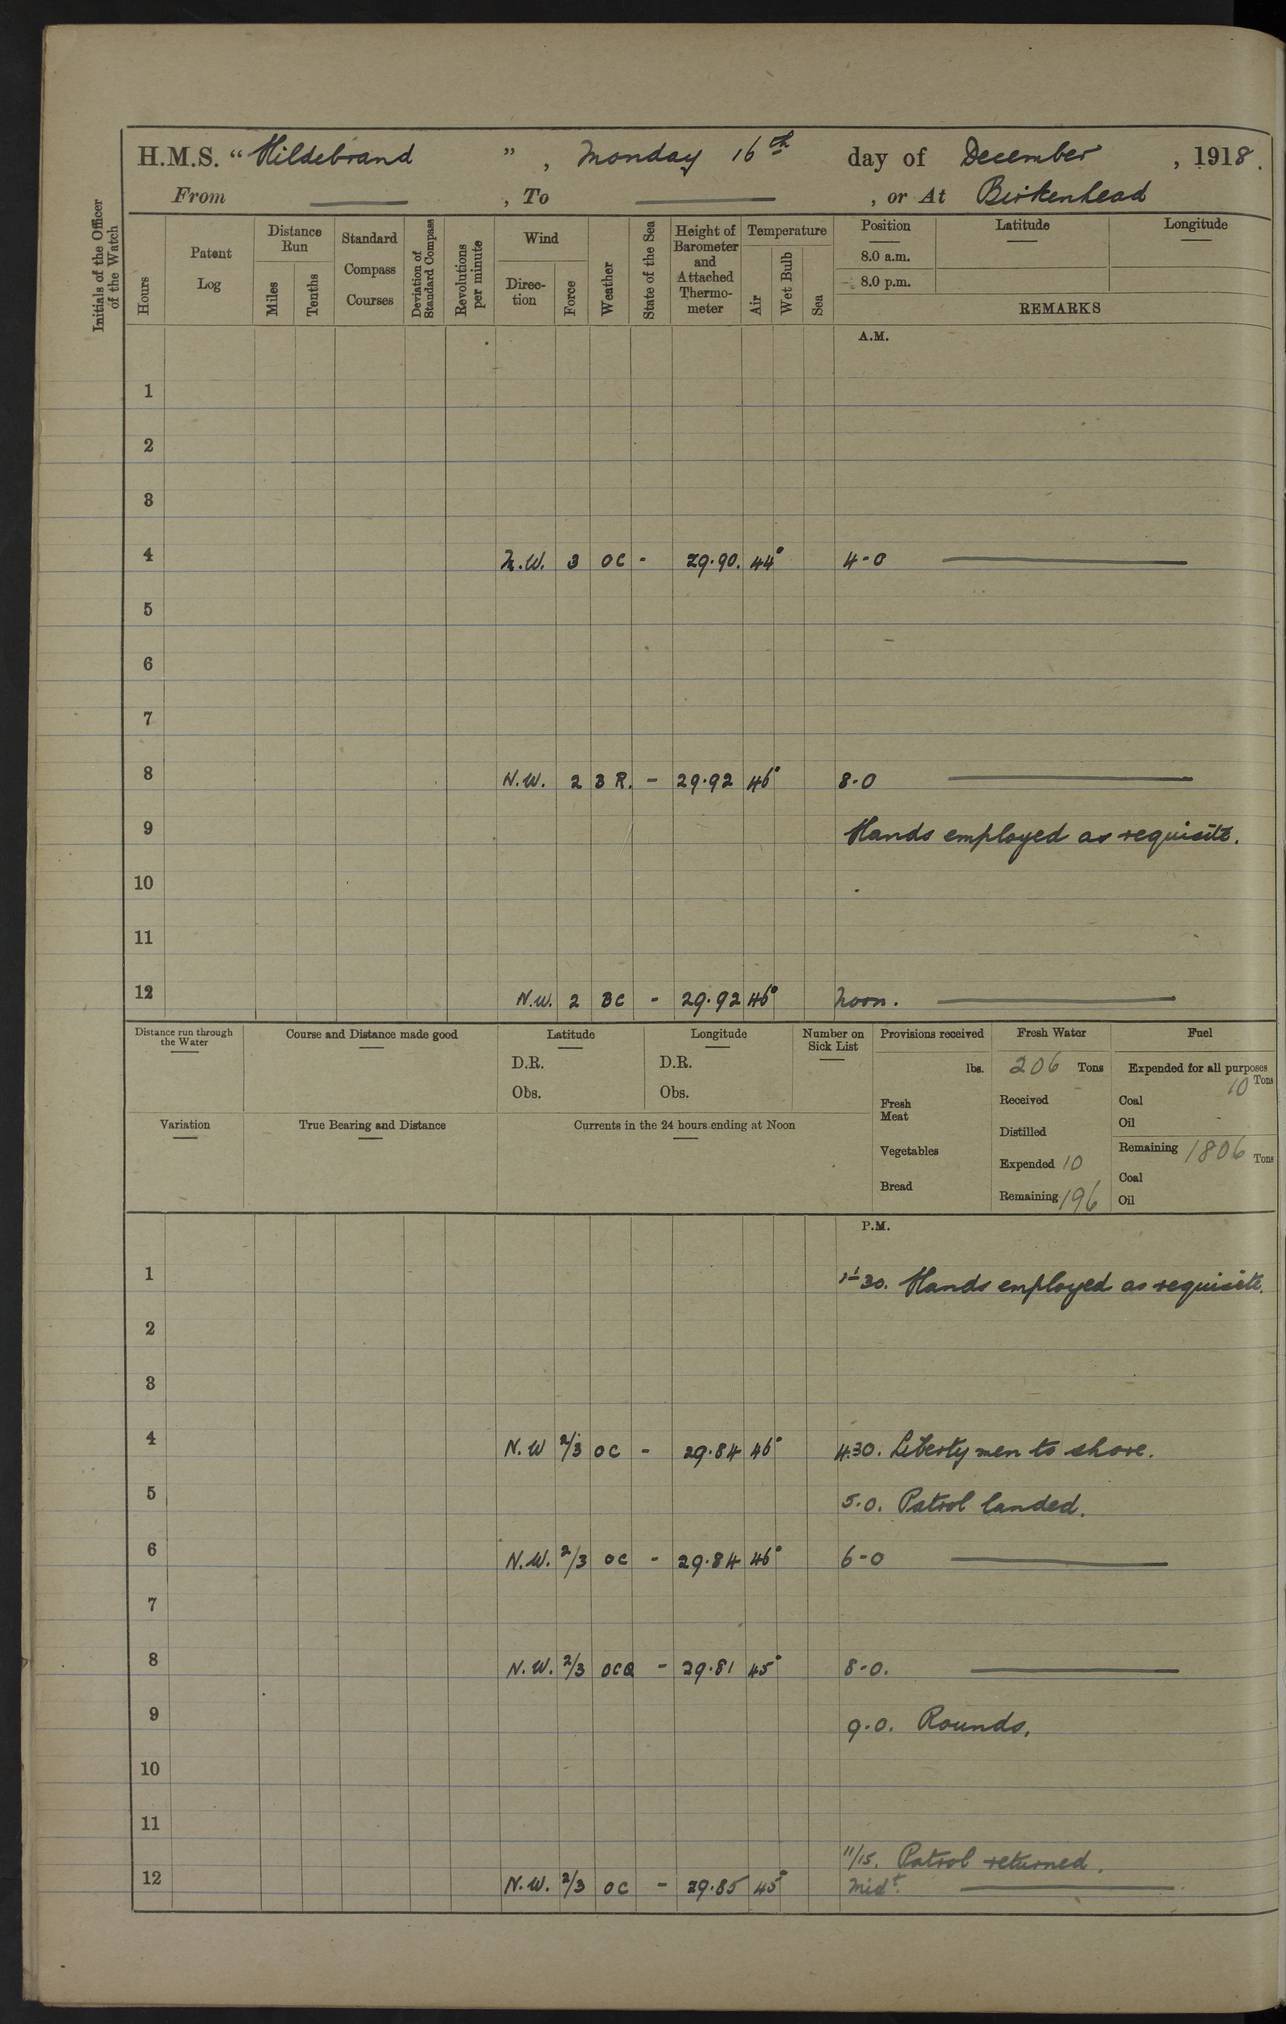 H.M.S. "Hildebrand", Monday 16th day of December, 1918.
From ———, To ———, or At Birkenhead
Initials of the Officer of the Watch
Hours
Patent Log
Distance Run
Miles
Tenths
Standard Compass Courses
Deviation of Standard Compass
Revolutions per minute
Wind
Direction
Force
Weather
State of the Sea
Height of Barometer and Attached Thermometer
Temperature
Air
Wet Bulb
Sea
Position
8.0 a.m.
8.0 p.m.
Latitude
Longitude
REMARKS
A.M.
1
2
3
4 N.W. 3 OC - 29.90. 44° 4-0 ———
5
6
7
8 N.W. 2 B R. - 29.92 46° 8-0 ———
9 Hands employed as requisite.
10
11
12 N.W. 2 BC - 29.92 46° Noon. ———
Distance run through the Water
Course and Distance made good
Latitude
D.R.
Obs.
Longitude
D.R.
Obs.
Number on Sick List
Provisions received
lbs.
Fresh Meat
Vegetables
Bread
Fresh Water
206 Tons
Received
Distilled
Expended 10
Remaining 196
Fuel
Expended for all purposes
10 Tons
Coal
Oil -
Remaining 1806 Tons
Coal
Oil
Variation
True Bearing and Distance
Currents in the 24 hours ending at Noon
P.M.
1 1-30. Hands employed as requisite.
2
3
4 N.W 2/3 OC - 29.84 46° 4.30. Liberty men to shore.
5 5.0. Patrol landed.
6 N.W. 2/3 OC - 29.84 46° 6-0 ———
7
8 N.W. 2/3 OCQ - 29.81 45° 8-0. ———
9 9.0. Rounds.
10
11
11/15. Patrol returned.
12 N.W. 2/3 OC - 29.85 45° Midt. ———